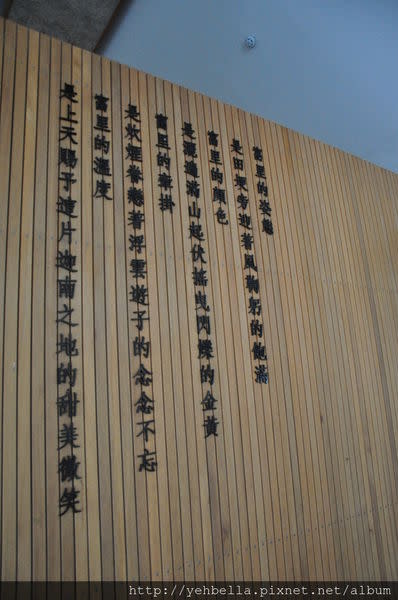 富里的姿態
是田裡旁迎著風鞠躬的飽滿
富里的顏色
是彌過滿山起伏搖曳閃爍的金黃
富里的牽掛
是炊煙眷戀著浮雲遊子的念念不忘
富里的溫度
是上天賜予這片迦南之地的甜美微笑
http://yehbella.pixnet.net/album